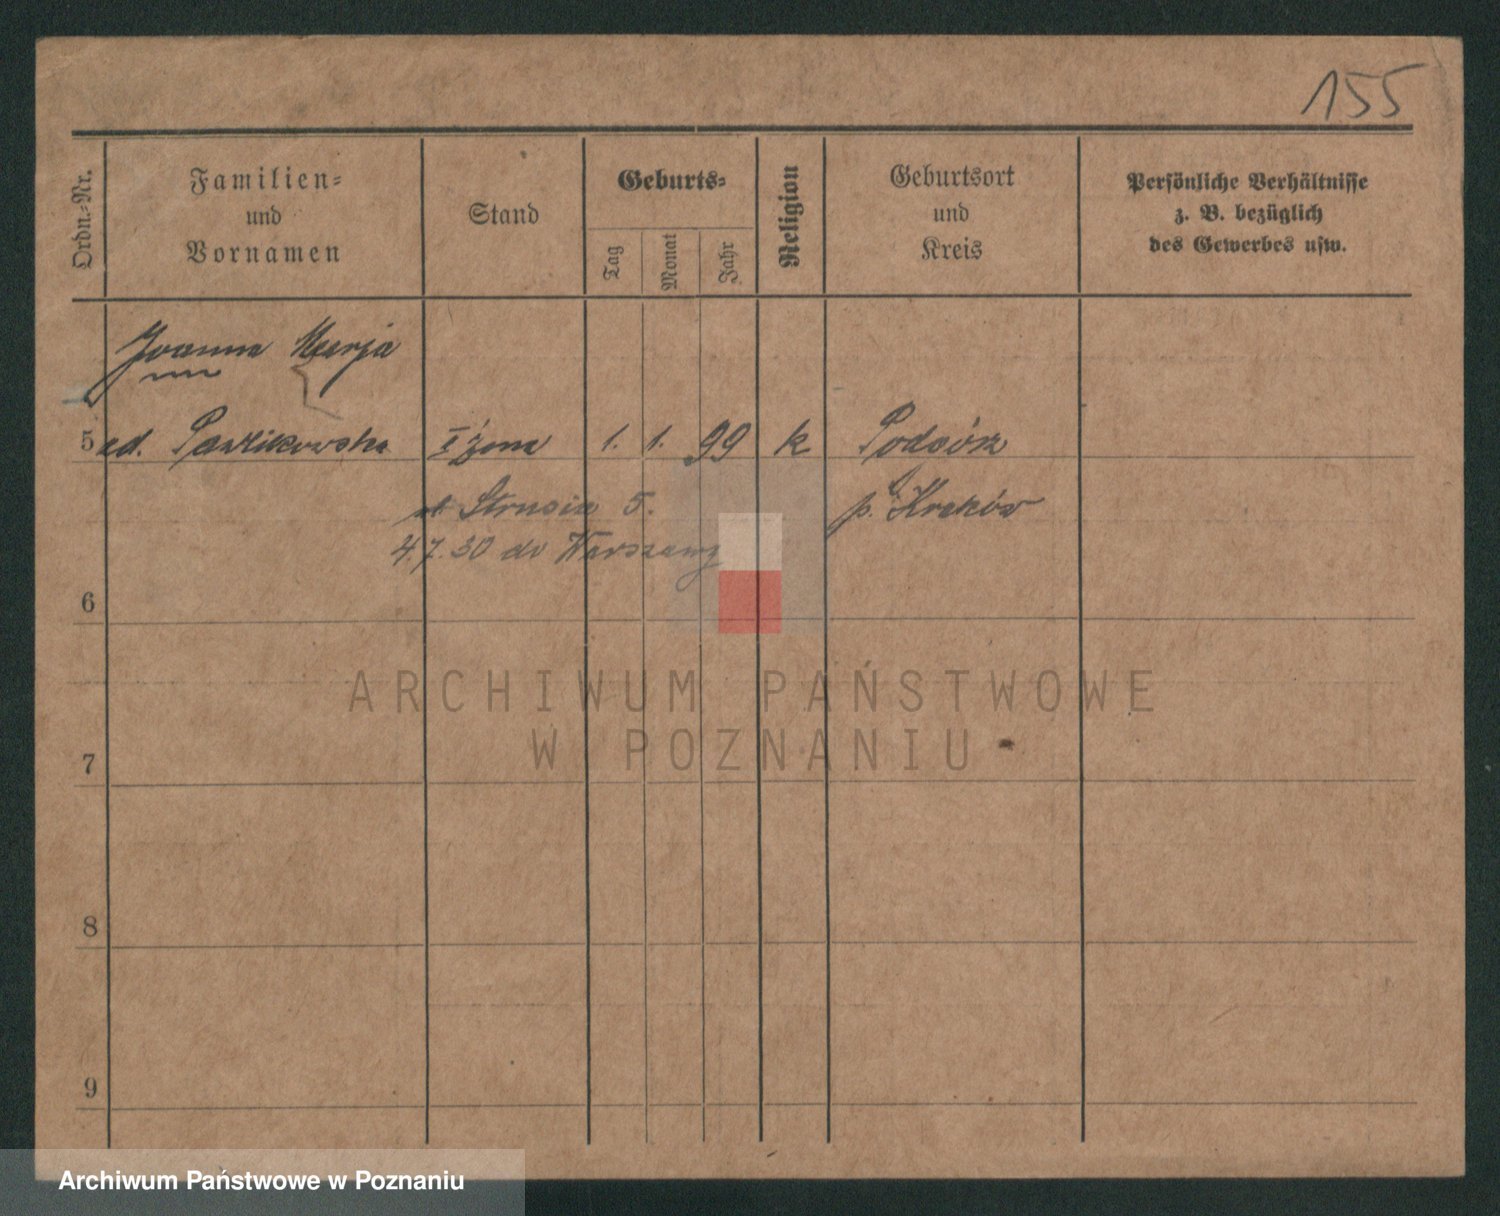 155
Ordn.-Nr.
Familien-
und
Vornamen
Stand
Geburts-
Tag
Monat
Jahr
Religion
Geburtsort
und
Kreis
Persönliche Verhältnisse
z. B. bezüglich
des Gewerbes usw.
Joanna Marja
5 Pawlikowska żona 1. 1. 99 k Podgórze
Strusia 5. p. Kraków
4.7.30 do Warszawy
6
7
8
9
ARCHIWUM PAŃSTWOWE
W POZNANIU
Archiwum Państwowe w Poznaniu